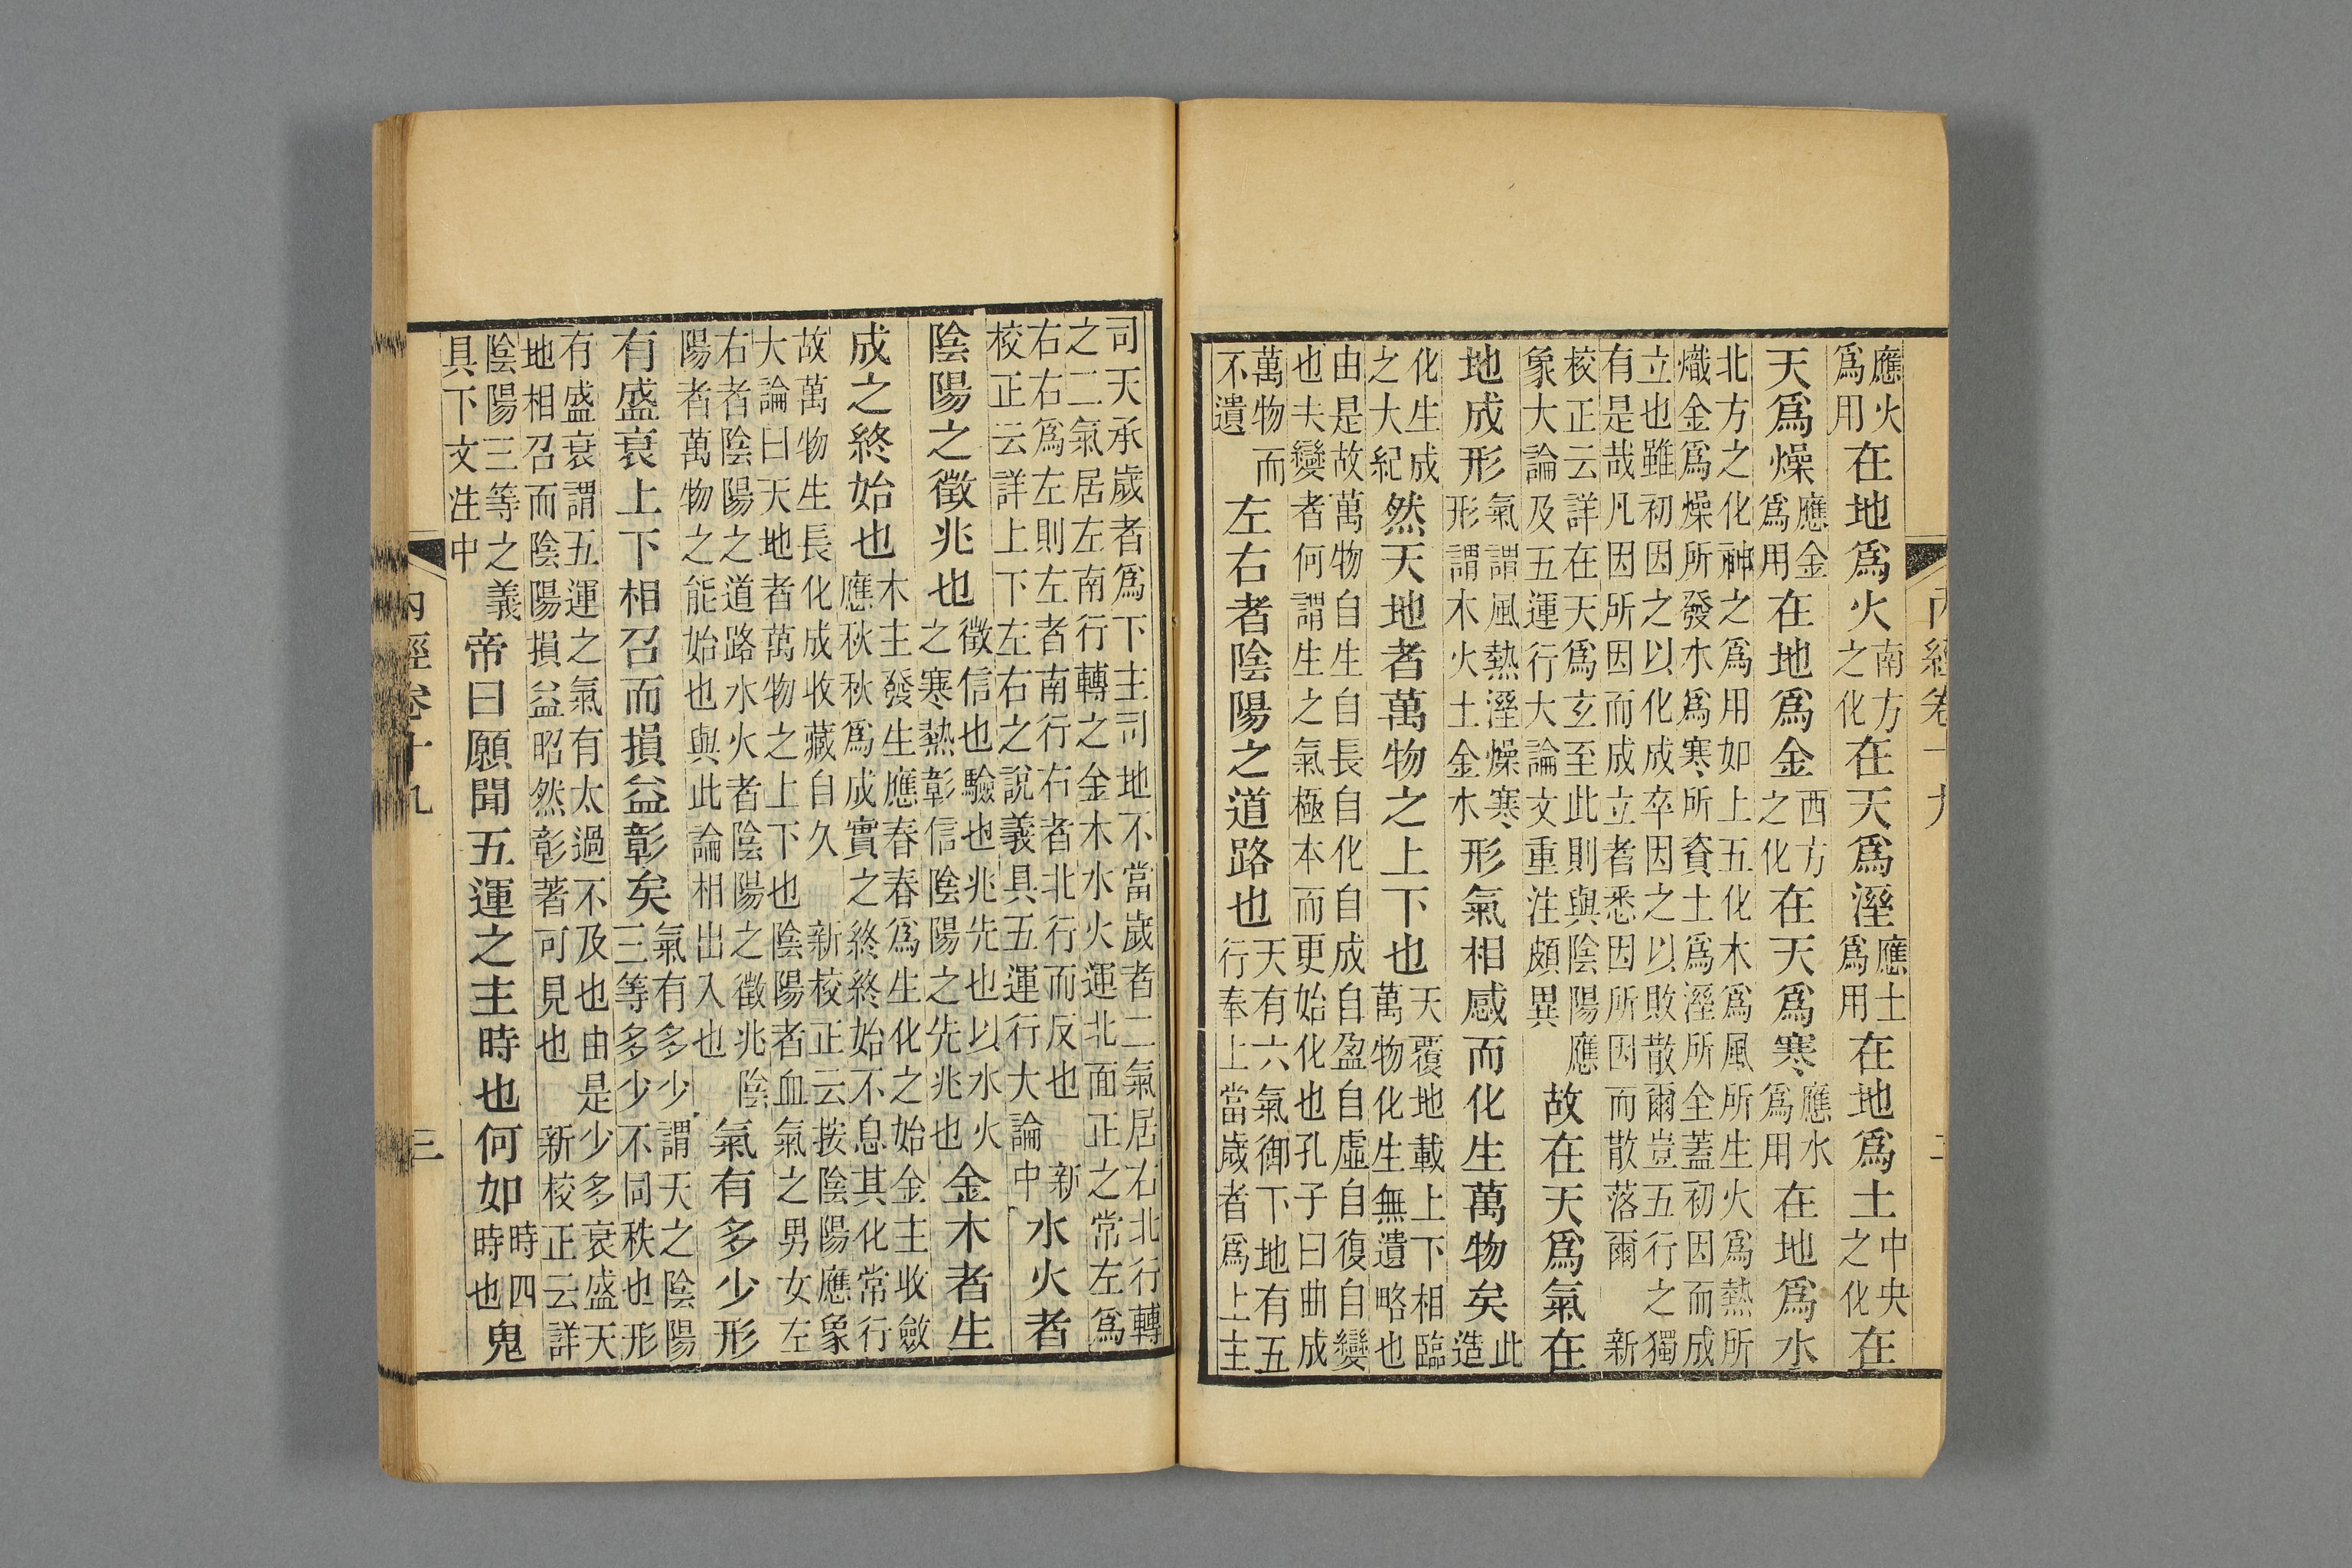 應火爲用在地爲火南方之化在天爲溼應土爲用在地爲土中央之化在
天爲燥應金爲用在地爲金西方之化在天爲寒應水爲用在地爲水
北方之化神之爲用如上五化木爲風所生火爲熱所
熾金爲燥所發水爲寒所資土爲溼所全蓋初因而成
立也雖初因之以化成卒因之以敗散爾豈五行之獨
有是哉凡因所因而成立者悉因所因而散落爾新
校正云詳在天爲玄至此則與陰陽應
象大論及五運行大論文重注頗異故在天爲氣在
地成形氣謂風熱溼燥寒形謂木火土金水形氣相感而化生萬物矣此造
化生成之大紀然天地者萬物之上下也天覆地載上下相臨萬物化生無遺略也
由是故萬物自生自長自化自成自盈自虛自復自變
也夫變者何謂生之氣極本而更始化也孔子曰曲成
萬物而不遺左右者陰陽之道路也天有六氣御下地有五行奉上當歲者爲上主
司天承歲者爲下主司地不當歲者二氣居右北行轉
之二氣居左南行轉之金木水火運北面正之常左爲
右右爲左則左者南行右者北行而反也新
校正云詳上下左右之說義具五運行大論中水火者
陰陽之徵兆也徵信也驗也兆先也以水火之寒熱彰信陰陽之先兆也金木者生
成之終始也木主發生應春春爲生化之始金主收斂應秋秋爲成實之終終始不息其化常行
故萬物生長化成收藏自久新校正云按陰陽應象
大論曰天地者萬物之上下也陰陽者血氣之男女左
右者陰陽之道路水火者陰陽之徵兆陰
陽者萬物之能始也與此論相出入也氣有多少形
有盛衰上下相召而損益彰矣氣有多少謂天之陰陽三等多少不同秩也形
有盛衰謂五運之氣有太過不及也由是少多衰盛天
地相召而陰陽損益昭然彰著可見也新校正云詳
陰陽三等之義具下文注中帝曰願聞五運之主時也何如時四時也鬼
內經卷十九 三